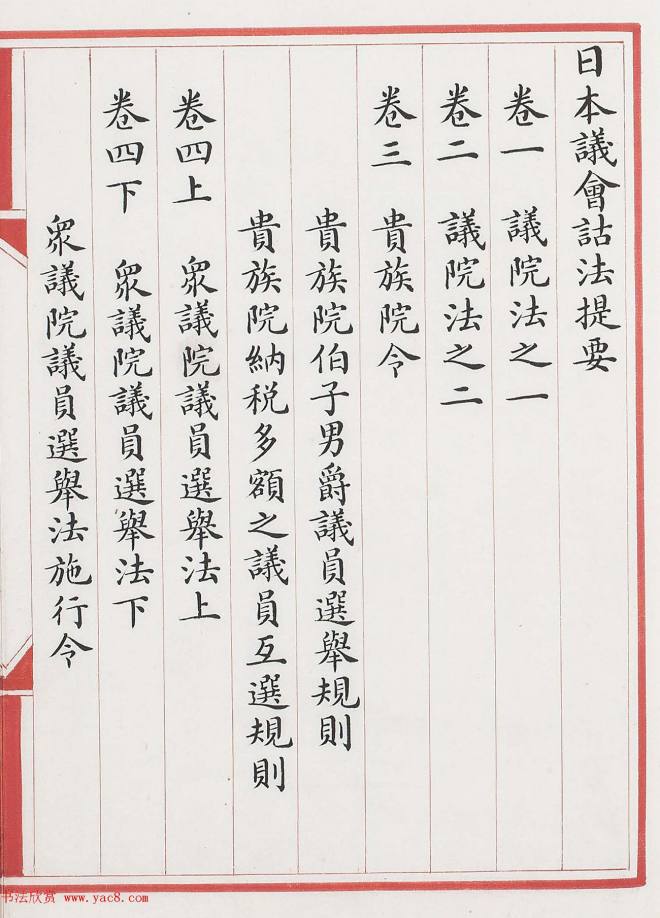 日本議會詁法提要
卷一　議院法之一
卷二　議院法之二
卷三　貴族院令
貴族院伯子男爵議員選舉規則
貴族院納税多額之議員互選規則
卷四上　眾議院議員選舉法上
卷四下　眾議院議員選舉法下
眾議院議員選舉法施行令
书法欣赏 www.yac8.com